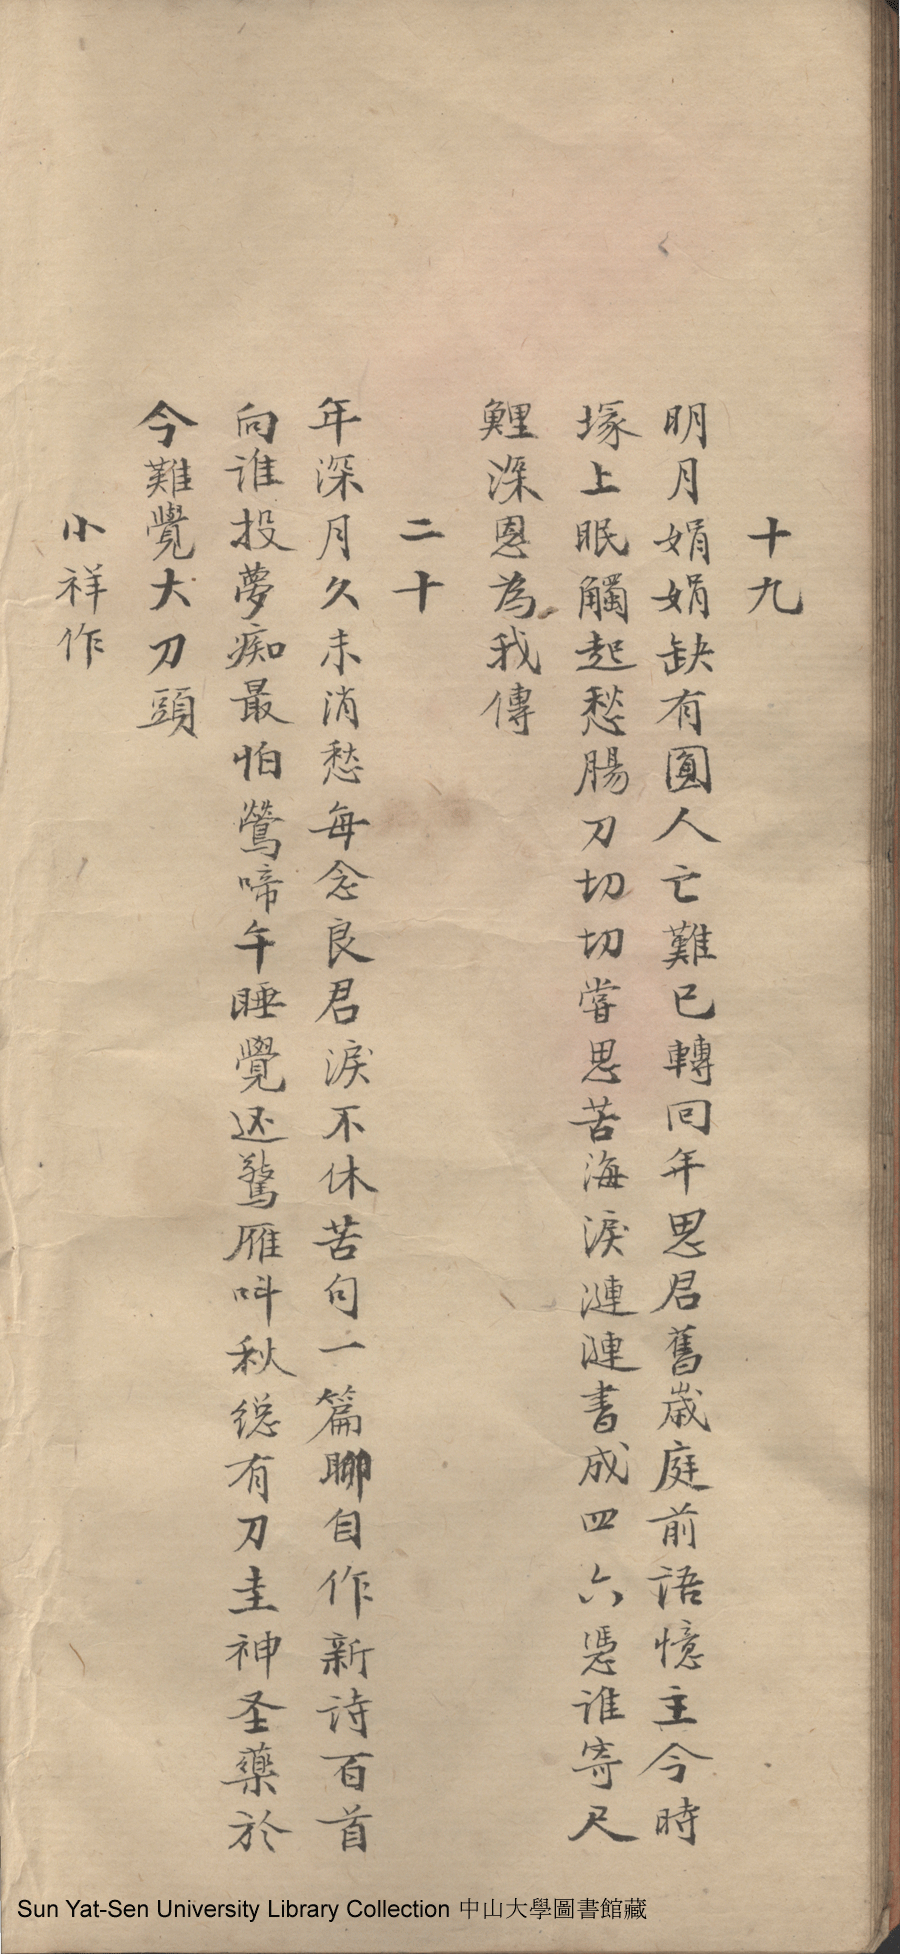 十九
明月娟娟缺有圓人亡難已轉回年思君舊歲庭前語憶主今時
塚上眠觸起愁腸刀切切嘗思苦海淚漣漣書成四六憑誰寄尺
鯉深恩為我傳
二十
年深月久未消愁每念良君淚不休苦句一篇聊自作新诗百首
向谁投夢痴最怕鶯啼午睡覺还驚雁呌秋縂有刀圭神圣藥於
今難覺大刀頭
小祥作
Sun Yat-Sen University Library Collection 中山大學圖書館藏